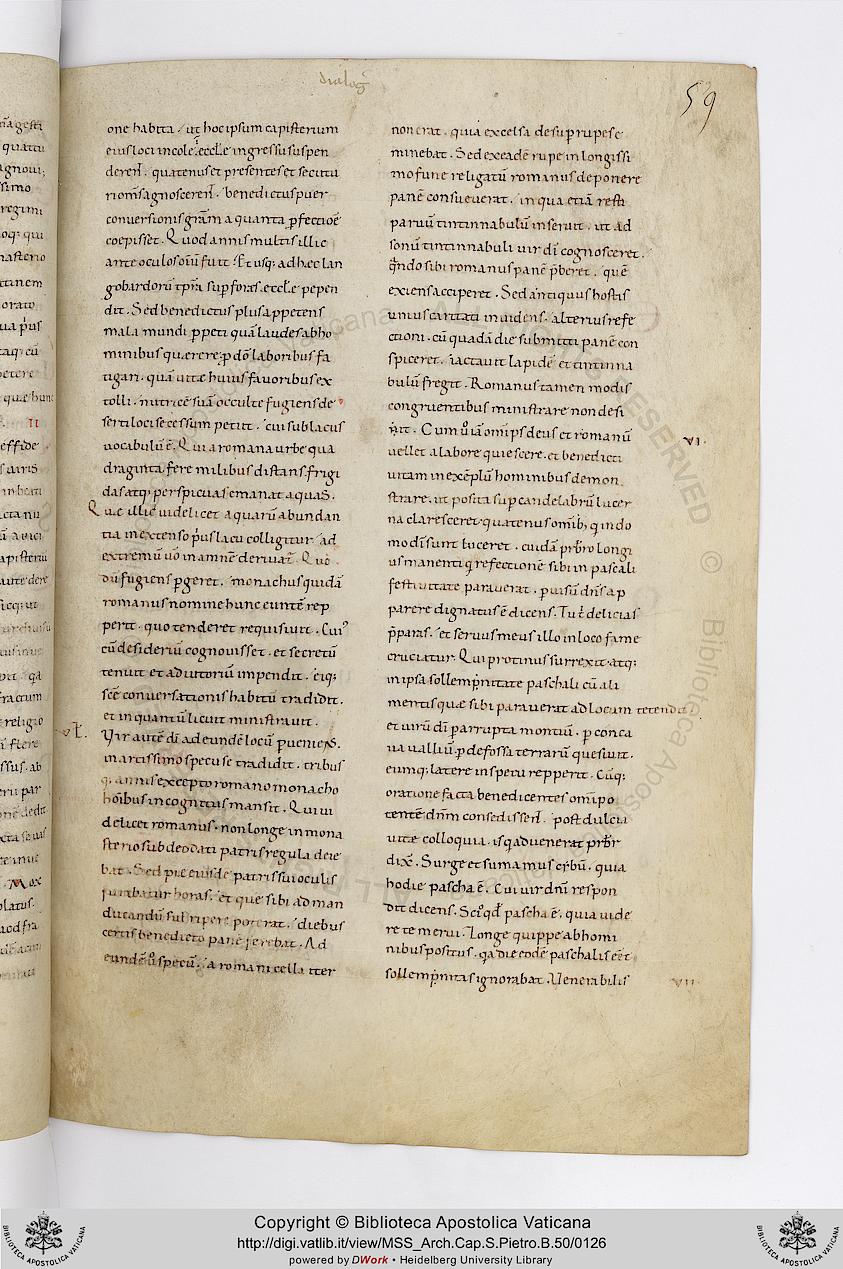 dialog̅
59
one habita . ut hoc ipsum capisterium
eius loci incole . eccl̅e ingressu suspen
deren̅t . quatenus et presentes et secutu
ri om̅s agnosceren̅t . benedictus puer
conversionis gra̅m a quanta ꝑfectioe̅
coepisset . Quod annis multis illic
ante oculos om̅iu̅ fuit . Et usq; ad hęc lan
gobardoru̅ tp̅ra sup̱ fores eccl̅e pepen
dit . Sed benedictus plus appetens
mala mundi ꝑpeti qua̅ laudes abho
minibus quærere ꝓ d̅o laboribus fa
tigari . qua̅ vitæ huius favoribus ex
tolli . nutrice̅ sua̅ occulte fugiens de
serti loci secessum petiit . cui sublacus
vocabulu̅ e̅ . Qui a romana urbe qua
draginta fere milibus distans . frigi
das atq; perspicuas emanat aquas .
Quæ illic videlicet aquaru̅ abundan
tia in extenso p'us lacu colligitur . ad
extremu̅ u̅o in amne̅ derivat̅ . Quo
du̅ fugiens ꝑgeret . monachus quida̅
romanus nomine hunc eunte̅ rep
perit . quo tenderet requisiuit . Cui'
cu̅ desideriu̅ cognouisset . et secretu̅
tenuit et adiutoriu̅ impendit . eiq;
sc̅e conversationis habitu̅ tradidit .
et in quantu̅ licuit ministravit .
Vir aute̅ d̅i ad eunde̅ locu̅ ꝑueniens .
in artissimo specu se tradidit . tribus
q; annis excepto romano monacho
ho̅ibus incognitus mansit . Qui vi
delicet romanus . non longe in mona
sterio sub deodati patris regula dege
bat . Sed pie eiusde̅ patris sui oculis
furabatur horas . et que sibi ad man
ducandu̅ subripere poterat . diebus
certis benedicto pane̅ ferebat . Ad
eunde̅ u̅o specu̅ . a romani cella iter
non erat . quia excelsa desup̱ rupes e
minebat . Sed ex eade̅ rupe in longissi
mo fune religatu̅ romanus deponere
pane̅ consueuerat . in qua etia̅ resti
paruu̅ tintinnabulu̅ inseruit . ut ad
sonu̅ tintinnabuli vir d̅i cognosceret .
qn̅do sibi romanus pane̅ p̅beret . que̅
exiens acciperet . Sed antiquus hostis
unius caritati invidens . alterius refe
ctioni . cu̅ quada̅ die submitti pane̅ con
spiceret . iactauit lapide̅ et tintinna
bulu̅ fregit . Romanus tamen modis
congruentibus ministrare non desi
ꝶit . Cum u̅o ia̅ om̅ip̅s deus et romanu̅
VI .
vellet a labore quiescere . et benedicti
vitam in exe̅plu̅ hominibus demon
strare . ut posita sup̱ candelabru̅ lucer
na claresceret quatenus om̅ib; qui in do
mo d̅i sunt luceret . cuida̅ pr̅bro longi
us manenti qui refectione̅ sibi in pascali
festiuitate parauerat . ꝑ uisu̅ dn̅s ap
parere dignatus e̅ dicens . Tu t' delicias
p̅paras . et servus meus illo in loco fame
cruciatur . Qui protinus surrexit . atq;
in ipsa sollemp̅nitate paschali cu̅ ali
mentis quæ sibi parauerat ad locum tetendit .
et viru̅ d̅i ꝑ arrupta montiu̅ . ꝑ conca
va valliu̅ . ꝑ defossa terraru̅ quesiuit .
eumq; latere in specu repperit . Cu̅q;
oratione facta benedicentes om̅ipo
tente̅ dn̅m consedissen̅t . post dulcia
vitæ colloquia . is q aduenerat pr̅br
dix̅ . Surge et sumamus cybu̅ . quia
hodie pascha e̅ . Cui vir dn̅i respon
dit dicens . Scio qd̅ pascha e̅ . quia uide
re te merui . Longe quippe ab homi
nibus positus . qa die eode̅ paschalis e̅et
sollemp̅nitas ignorabat . Venerabilis
VII .
Copyright © Biblioteca Apostolica Vaticana
http://digi.vatlib.it/view/MSS_Arch.Cap.S.Pietro.B.50/0126
powered by DWork • Heidelberg University Library
BIBLIOTECA APOSTOLICA VATICANA
BIBLIOTECA APOSTOLICA VATICANA